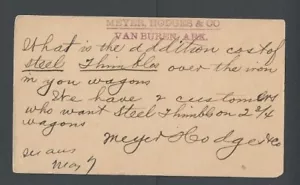 MEYER, HODGES & CO
VAN BUREN, ARK.
What is the addition cost of
steel Thimbles over the iron
in you wagons
We have 2 customers
who want Steel Thimbl on 2 3/4
wagons
Meyer Hodges & Co
ans
May 7